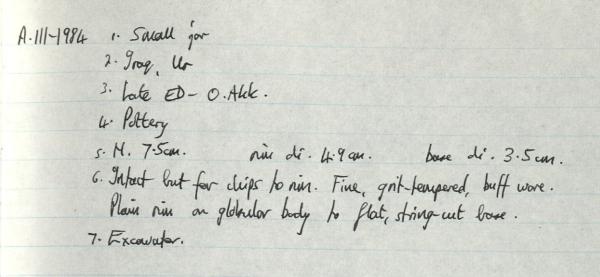 A.III-1984 1. Small jar
2. Iraq, Ur
3. Late ED - O.Akk.
4. Pottery
5. H. 7.5cm. rim di. 4.9cm. base di. 3.5cm.
6. Intact but for chips to rim. Fine, grit-tempered, buff ware.
Plain rim on globular body to flat, string-cut base.
7. Excavator.